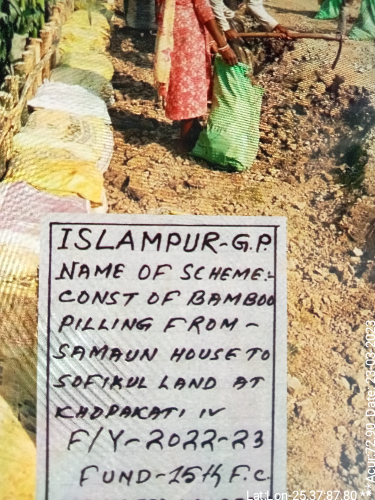 ISLAMPUR-G.P.
NAME OF SCHEME:-
CONST OF BAMBOO
PILLING FROM-
SAMAUN HOUSE TO
SOFIKUL LAND AT
KHOPAKATI IV
F/Y-2022-23
FUND-15th F.C.
Lat,Lon-25.37'87.80